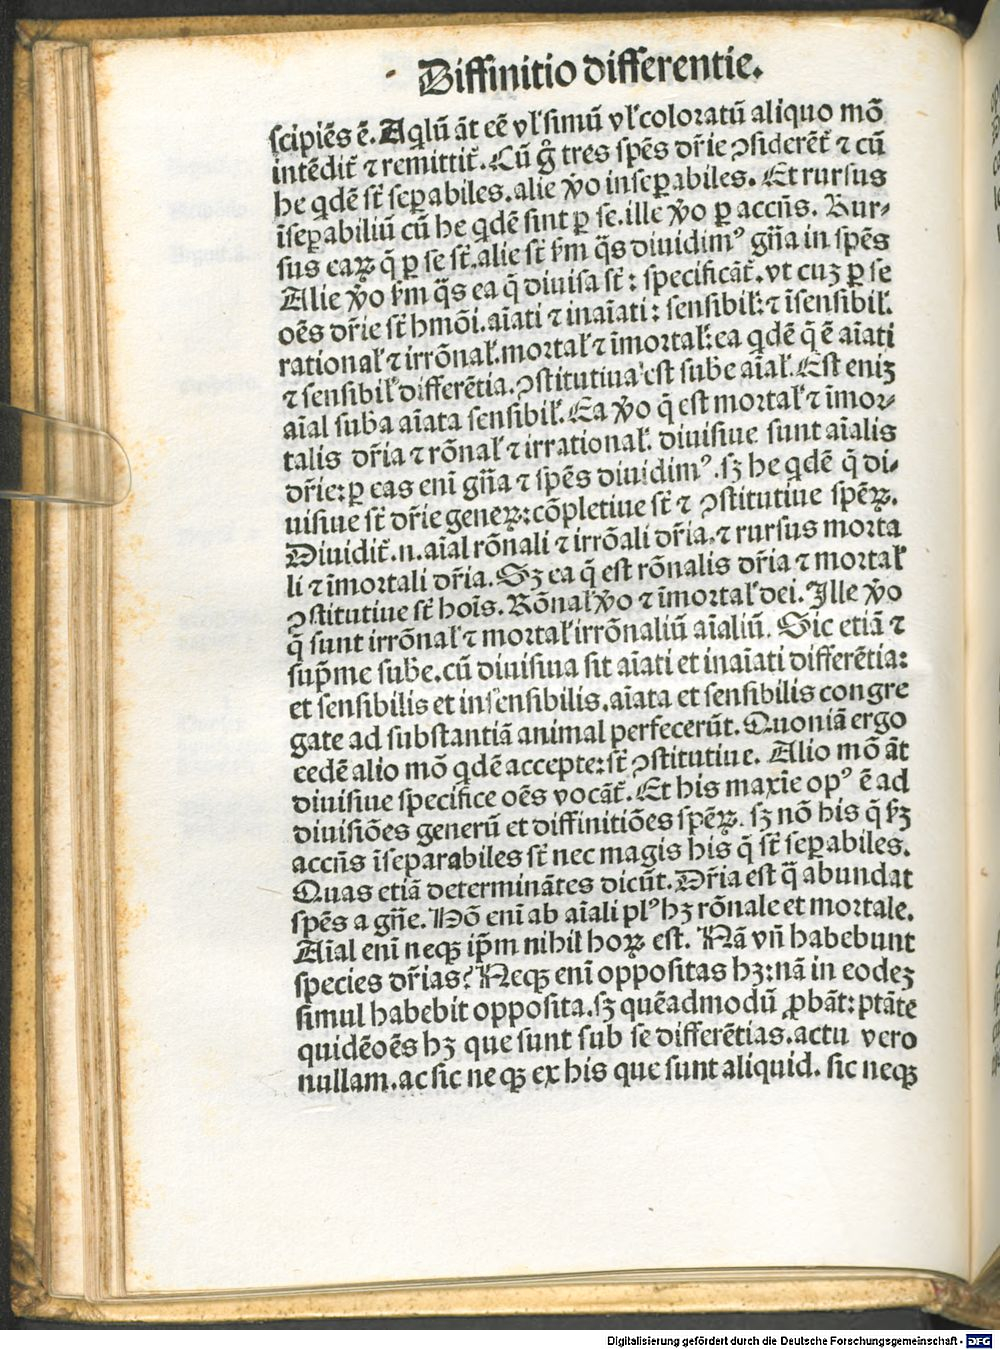 Diffinitio differentie.
scipiēs ē. Aqlū āt eē vł simū vł coloratū aliquo mō
intēdit̄ ⁊ remittit̄. Cū g̊ tres spēs dr̄ie ꝯsiderēt̄ ⁊ cū
he qdē st̄ seꝑabiles. alie v̊o inseꝑabiles. Et rursus
īseꝑabiliū cū he qdē sint ꝑ se. ille v̊o ꝑ accn̄s. Rur-
sus earꝝ q̄ ꝑ se st̄. alie st̄ ẜm q̄s diuidimꝰ gn̄a in spēs
Alie v̊o ẜm q̄s ea q̄ diuisa st̄: specificāt̄. vt cuꝫ ꝑ se
oēs dr̄ie st̄ hmōi. aīati ⁊ inaīati: sensibił: ⁊ īsensibił.
rationał ⁊ irrōnał. mortał ⁊ īmortał: ea qdē q̄ ē aīati
⁊ sensibił differētia. ꝯstitutiua est sub̄e aīał. Est eniꝫ
aīal sub̄a aīata sensibił. Ea v̊o q̄ est mortał ⁊ īmor-
talis dr̄ia ⁊ rōnał ⁊ irrationał. diuisiue sunt aīalis
dr̄ie: ꝑ eas enī gn̄a ⁊ spēs diuidimꝰ. sꝫ he qdē q̄ di-
uisiue st̄ dr̄ie generꝝ: cōpletiue st̄ ⁊ ꝯstitutiue speꝝ.
Diuidit̄. n. aīal rōnali ⁊ irrōali dr̄ia. ⁊ rursus morta
li ⁊ īmortali dr̄ia. Sꝫ ea q̄ est rōnalis dr̄ia ⁊ mortał
ꝯstitutiue st̄ hoīs. Rōnał v̊o ⁊ īmortał dei. Ille v̊o
q̄ sunt irrōnał ⁊ mortał irrōnaliū aīaliū. Sic etiā ⁊
sup̄me sub̄e. cū diuisiua sit aīati et inaīati differētia:
et sensibilis et insensibilis. aīata et sensibilis congre
gate ad substantiā animal perfecerūt. Quoniā ergo
eedē alio mō qdē accepte: st̄ ꝯstitutiue. Alio mō āt
diuisiue specifice oēs vocāt̄. Et his maxīe opꝰ ē ad
diuisiōes generū et diffinitiōes speꝝ. sꝫ nō his q̄ ẜꝫ
accn̄s īseparabiles st̄ nec magis his q̄ st̄ seꝑabiles.
Quas etiā determinātes dicūt. Dr̄ia est q̄ abundat
spēs a gn̄e. Hō enī ab aīali plꝰ hꝫ rōnale et mortale.
Aīal enī neqꝫ ip̄m nihil horꝝ est. Nā vn̄ habebunt
species dr̄ias? Neqꝫ enī oppositas hꝫ: nā in eodeꝫ
simul habebit opposita. sꝫ quēadmodū ꝓbāt: ptāte
quidē oēs hꝫ que sunt sub se differētias. actu vero
nullam. ac sic neqꝫ ex his que sunt aliquid. sic neqꝫ
Digitalisierung gefördert durch die Deutsche Forschungsgemeinschaft - DFG